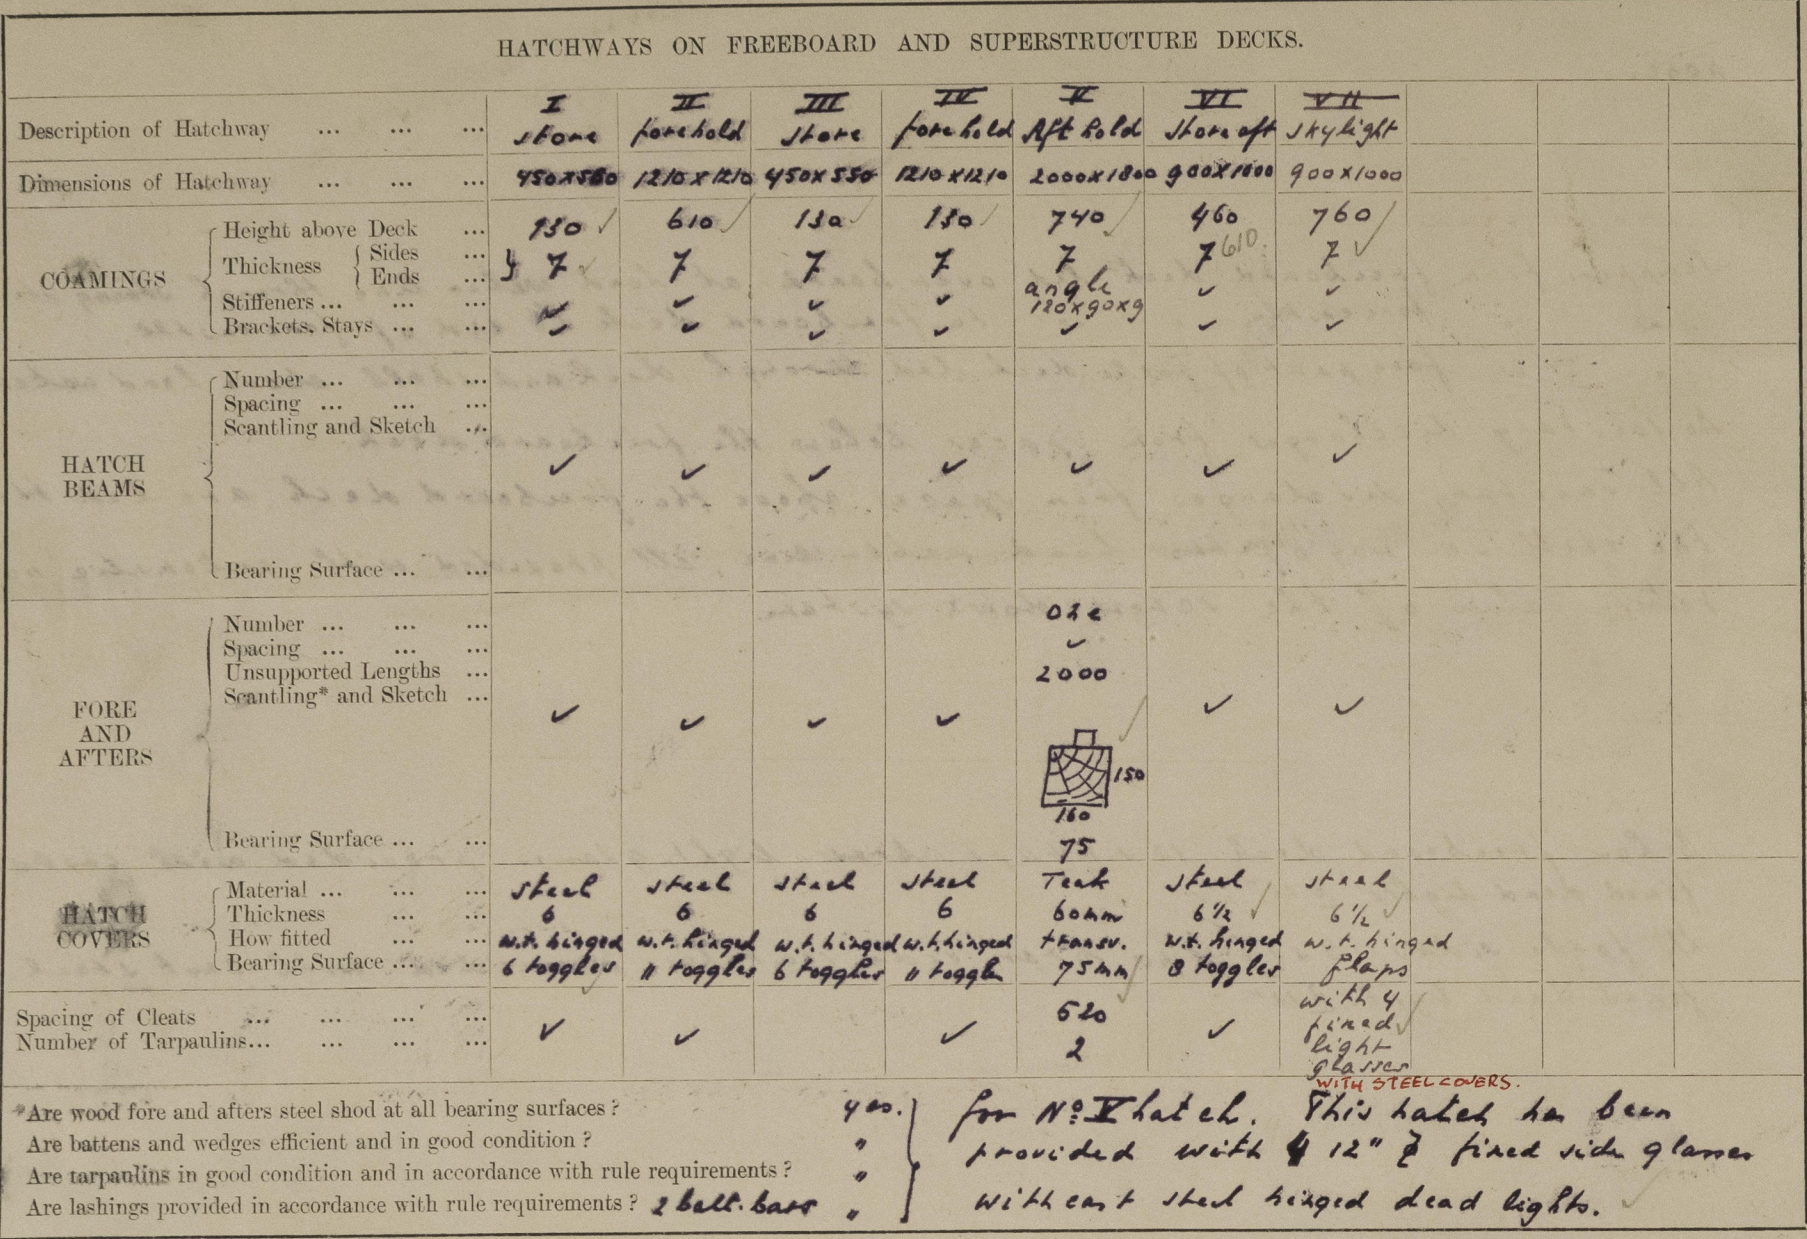 HATCHWAYS ON FREEBOARD AND SUPERSTRUCTURE DECKS.
I II III IV V VI VII
Description of Hatchway ... ... ... store forehold store forehold Aft hold store aft skylight
Dimensions of Hatchway ... ... ... 450x550 1210x1210 450x550 1210x1210 2000x1800 900x1000 900x1000
COAMINGS
Height above Deck ... 130 ✓ 610 ✓ 130 ✓ 130 ✓ 740 ✓ 460 760 ✓
Thickness { Sides ... Ends ... } 7 ✓ 7 7 7 7 7 610. 7 ✓
Stiffeners ... ... ... ✓ ✓ ✓ ✓ angle 120x90x9 ✓ ✓
Brackets, Stays ... ... ✓ ✓ ✓ ✓ ✓ ✓ ✓
HATCH BEAMS
Number ... ... ...
Spacing ... ... ...
Scantling and Sketch ...
✓ ✓ ✓ ✓ ✓ ✓ ✓
Bearing Surface ... ...
FORE AND AFTERS
Number ... ... ... one
Spacing ... ... ... ✓
Unsupported Lengths ... 2000
Scantling* and Sketch ...
✓ ✓ ✓ ✓ ✓ ✓ ✓
150
160
Bearing Surface ... ... 75
HATCH COVERS
Material ... ... ... steel steel steel steel Teak steel steel
Thickness ... ... 6 6 6 6 60mm 6½ ✓ 6½ ✓
How fitted ... ... w.t. hinged w.t. hinged w.t. hinged w.t. hinged transv. w.t. hinged w.t. hinged
Bearing Surface ... ... 6 toggles " toggles 6 toggles " toggles 75mm 8 toggles flaps
Spacing of Cleats ... ... ... ... ✓ ✓ ✓ 520 ✓ with 4 fixed
Number of Tarpaulins... ... ... ... 2 light glasses
WITH STEEL COVERS.
*Are wood fore and afters steel shod at all bearing surfaces? yes. for No V hatch. This hatch has been
Are battens and wedges efficient and in good condition? " provided with 4 12" fixed side glasses
Are tarpaulins in good condition and in accordance with rule requirements? "
Are lashings provided in accordance with rule requirements? 2 batt. bars " with cast steel hinged dead lights.